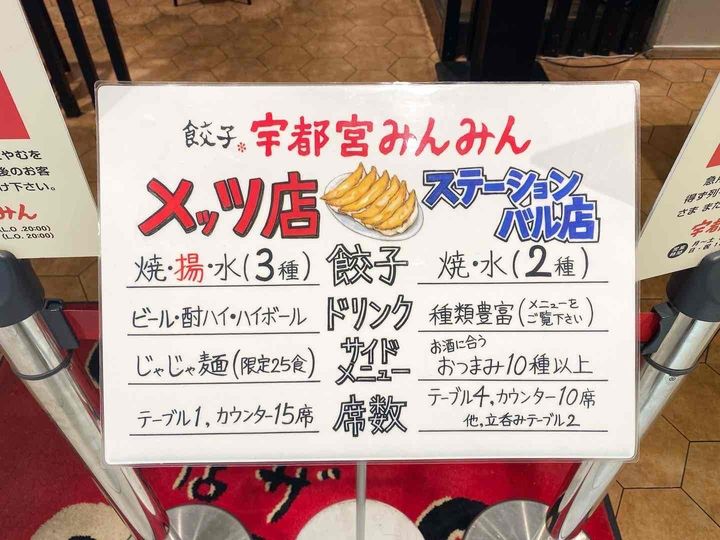 餃子*宇都宮みんみん
メッツ店
ステーション
バル店
焼・揚・水(3種)
餃子
焼・水(2種)
ビール・酎ハイ・ハイボール
ドリンク
種類豊富(メニューをご覧下さい)
じゃじゃ麺(限定25食)
サイド
メニュー
お酒に合う
おつまみ10種以上
テーブル1,カウンター15席
席数
テーブル4,カウンター10席
他,立呑みテーブル2
やむを
後のお客
け下さい。
みん
(L.O. 20:00)
(L.O. 20:00)
急
得ず
さま また
宇都